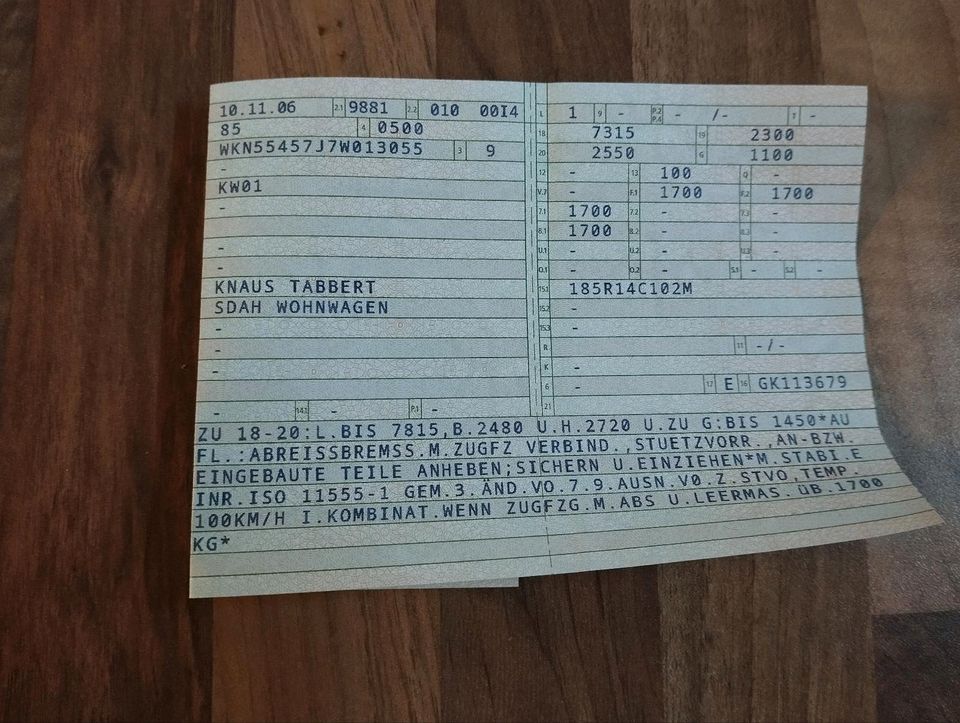 10.11.06 2.1 9881 2.2 010 00I4 L 1 9 - P.2 P.4 - /- T -
85 4 0500 18 7315 19 2300
WKN55457J7W013055 3 9 20 2550 G 1100
- 12 - 13 100 Q -
KW01 V.7 - F.1 1700 F.2 1700
- 7.1 1700 7.2 - 7.3 -
8.1 1700 8.2 - 8.3 -
- U.1 - U.2 - U.3 -
- O.1 - O.2 - S.1 - S.2 -
KNAUS TABBERT 15.1 185R14C102M
SDAH WOHNWAGEN 15.2 -
- 15.3 -
- R 11 -/-
- K -
6 - 17 E 16 GK113679
- 14.1 - P.1 - 21
ZU 18-20:L.BIS 7815,B.2480 U.H.2720 U.ZU G:BIS 1450*AU
FL.:ABREISSBREMSS.M.ZUGFZ VERBIND.,STUETZVORR.,AN-BZW.
EINGEBAUTE TEILE ANHEBEN;SICHERN U.EINZIEHEN*M.STABI.E
INR.ISO 11555-1 GEM.3.ÄND.VO.7.9.AUSN.V0.Z.STVO,TEMP.
100KM/H I.KOMBINAT.WENN ZUGFZG.M.ABS U.LEERMAS.ÜB.1700
KG*